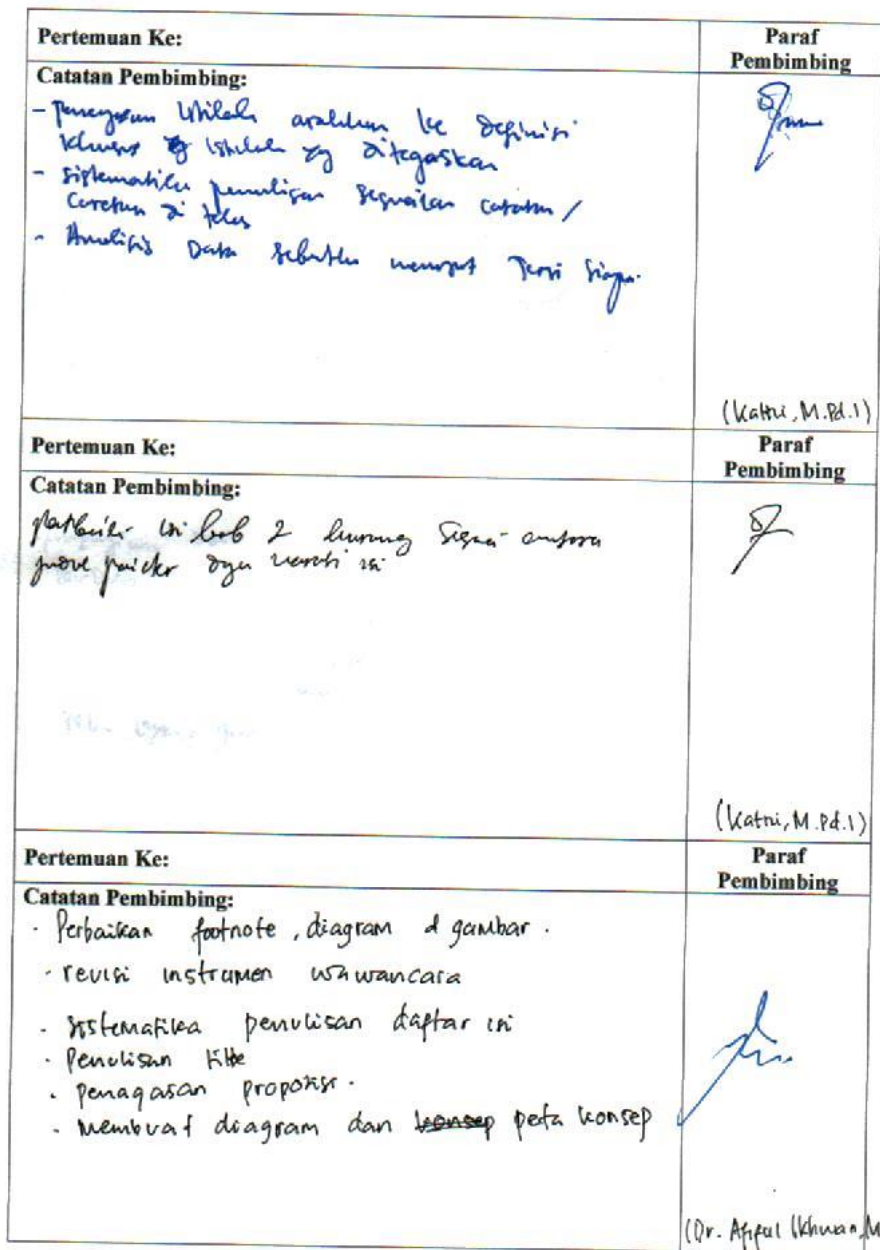 Pertemuan Ke:
Paraf
Pembimbing
Catatan Pembimbing:
- Penegasan Istilah arahkan ke definisi
khusus istilah yg ditegaskan
- sistematika penulisan sesuaikan catatan /
coretan di
- Analisis Data sebutkan menurut Teori Siapa.
(Katni, M.Pd.I)
Pertemuan Ke:
Paraf
Pembimbing
Catatan Pembimbing:
isi bab 2 kurang antara
isi
(Katni, M.Pd.I)
Pertemuan Ke:
Paraf
Pembimbing
Catatan Pembimbing:
· Perbaikan footnote, diagram d gambar.
· revisi instrumen wawancara
· sistematika penulisan daftar isi
· Penulisan
· penagasan proposisi.
· Membuat diagram dan konsep peta konsep
(Dr. Afiful Ikhwan, M